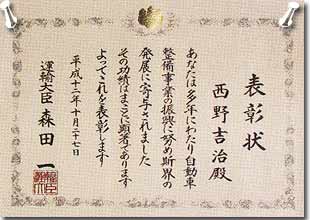 表彰状
西野吉治殿
あなたは多年にわたり自動車
整備事業の振興に努め斯界の
発展に寄与されました
その功績はまことに顕著であります
よってこれを表彰します
平成十二年十月二十七日
運輸大臣 森田 一